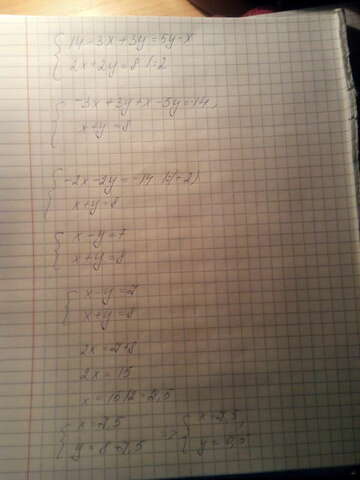 14-3x+3y=5y-x
2x+2y=8 /:2
-3x+3y+x-5y=-14
x+y=8
-2x-2y=-14 /:(-2)
x+y=8
x-y=7
x+y=8
x-y=7
x+y=8
2x=7+8
2x=15
x=15/2=7,5
x=7,5
y=8-7,5
=> x=7,5
y=0,5